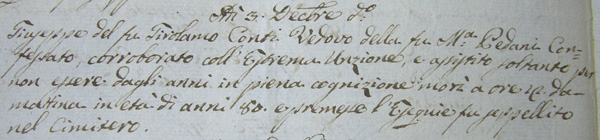 Adi 3. Decbre do.
Giuseppe del fu Girolamo Conti Vedovo della fu Ma. Pedani Con=
fessato, corroborato coll' Estrema Unzione, e assistito soltanto per
non essere dagli anni in piena cognizione morì a ore 12. da
matina in età di anni 80. e premesse l'Esequie fu seppellito
nel Cimitero.